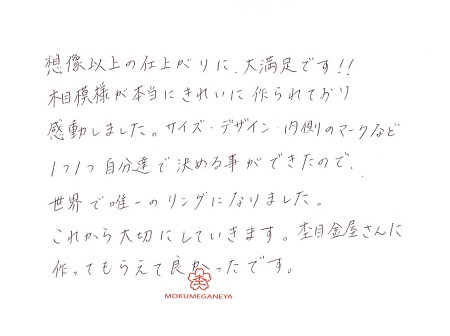 想像以上の仕上がりに、大満足です!!
木目模様が本当にきれいに作られており
感動しました。サイズ・デザイン・内側のマークなど
1つ1つ自分達で決める事ができたので、
世界で唯一のリングになりました。
これから大切にしていきます。杢目金屋さんに
作ってもらえて良かったです。
杢
MOKUMEGANEYA